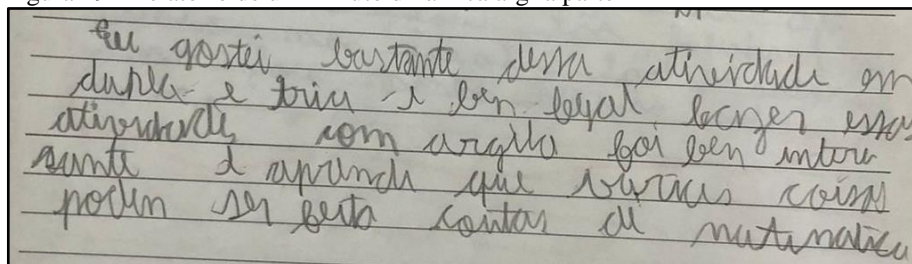 Eu gostei bastante dessa atineidade em
dupla e triu e ben legal fazer essas
atineidade com argila foi ben intere
sante e aprende que várias coisas
poden ser feita contas de matematica